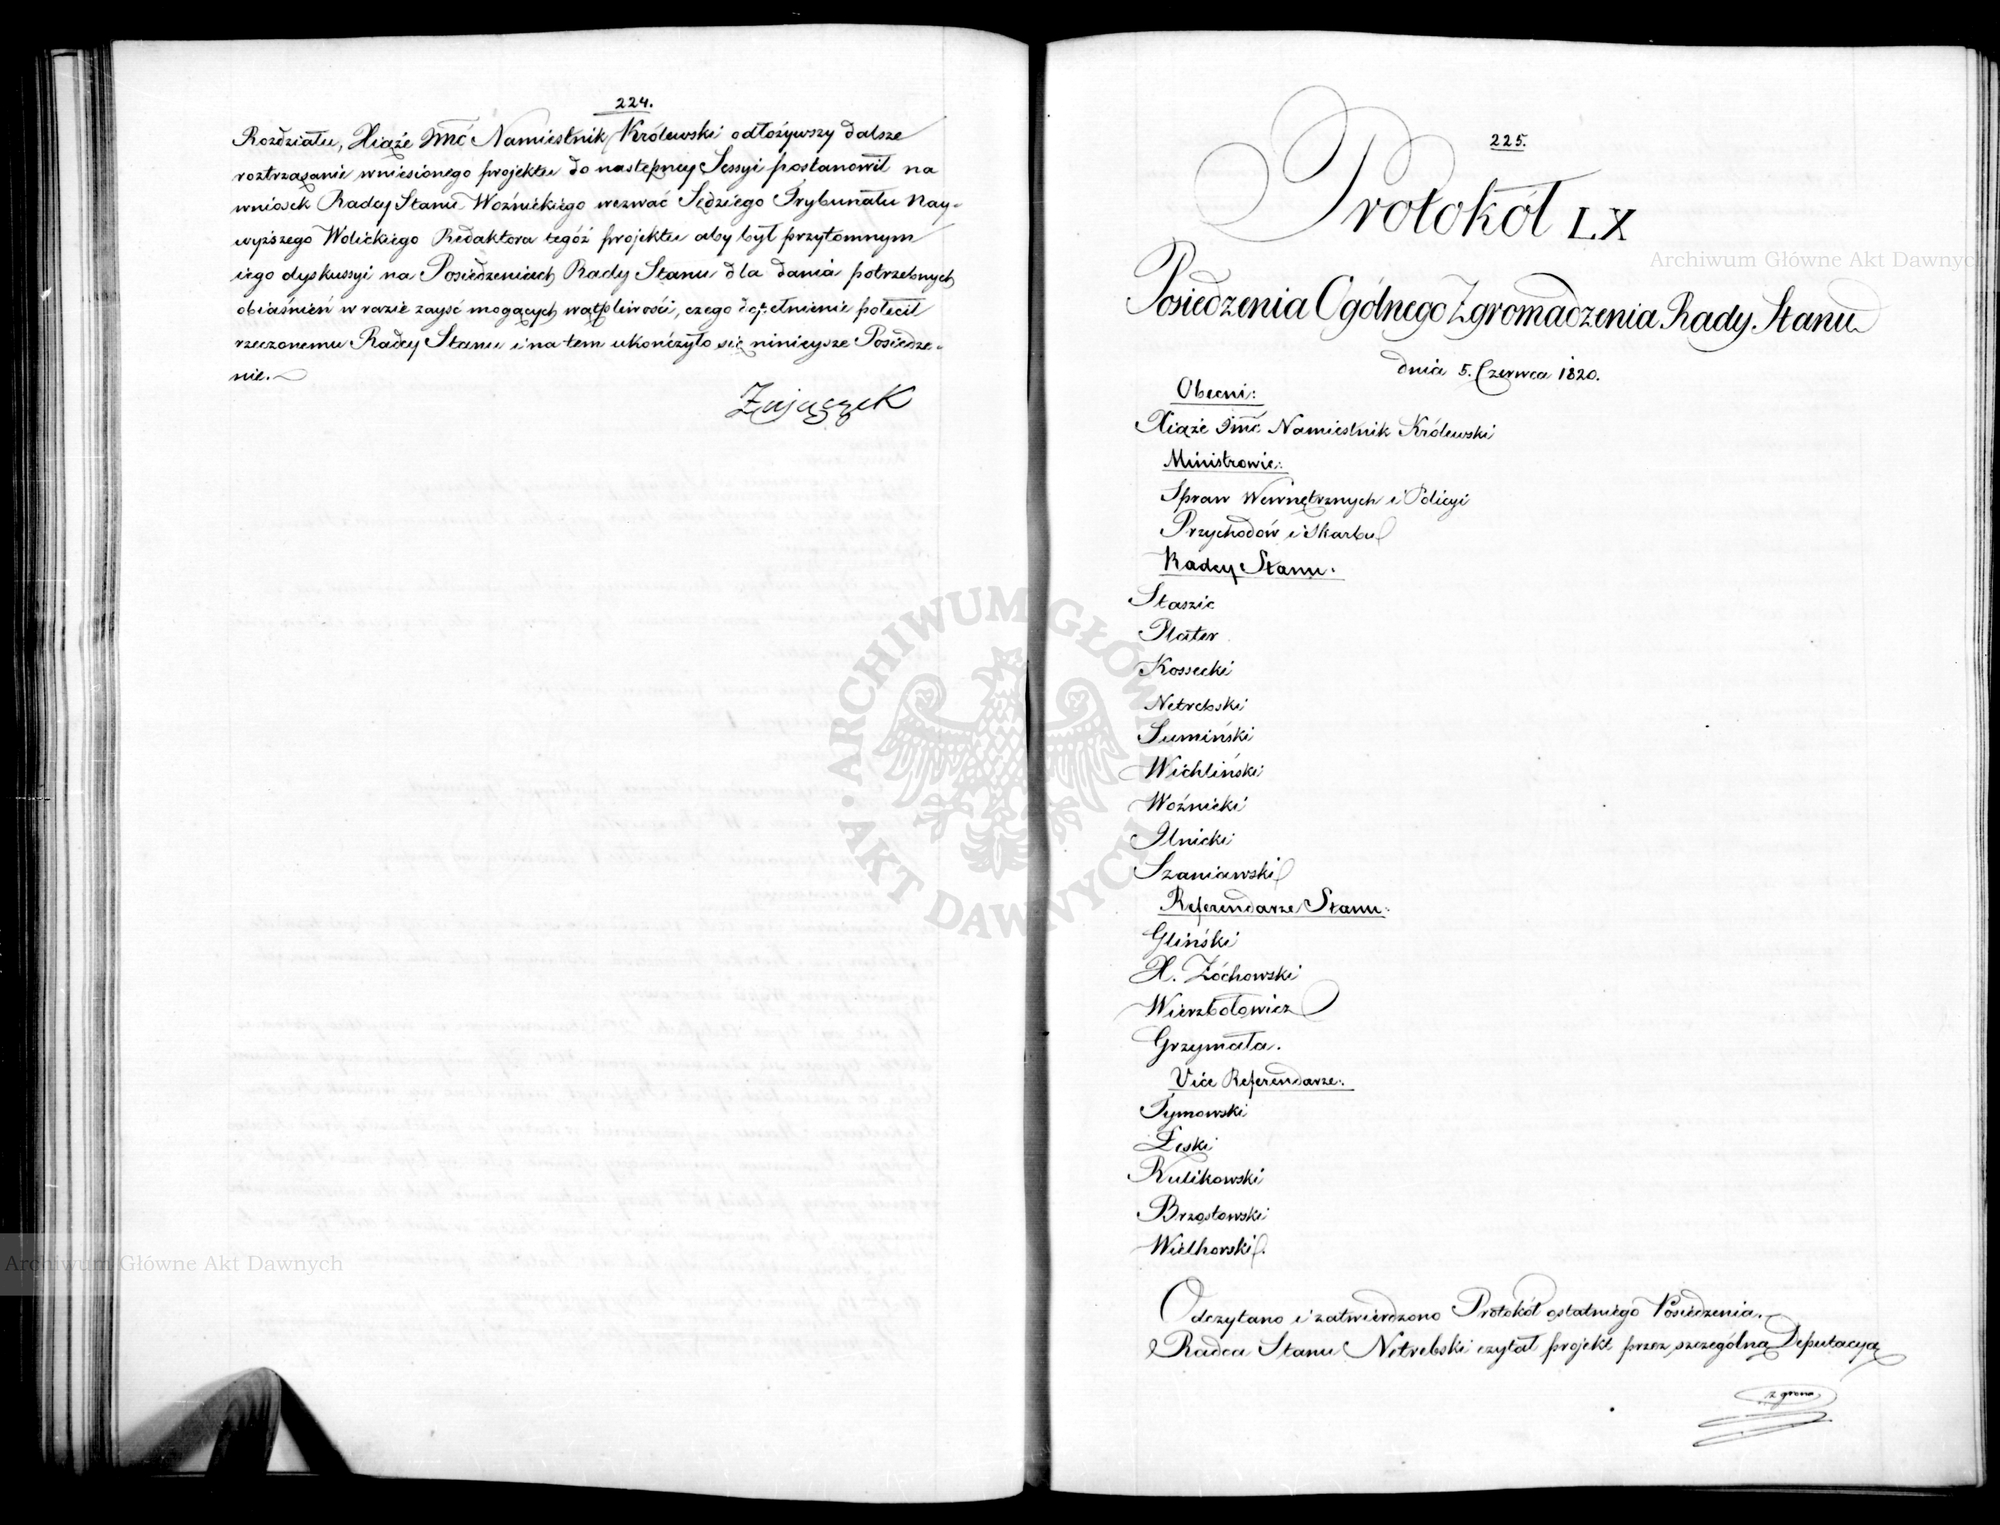 224.
Rozdziału, Xiąże Jmć Namiestnik Królewski odłożywszy dalsze
roztrząsanie wniesionego projektu do następney Sessyi postanowił na
wniosek Radcy Stanu Woźnickiego wezwać Sędziego Trybunału Nay-
wyższego Wolickiego Redaktora tegóż projektu aby był przytomnym
iego dyskussyi na Posiedzeniach Rady Stanu dla dania potrzebnych
obiaśnień w razie zayść mogących wątpliwości, czego dopełnienie polecił
rzeczonemu Radcy Stanu i na tem ukończyło się ninieysze Posiedze-
nie.
Zajączek
225.
Protokół LX
Posiedzenia Ogólnego Zgromadzenia Rady Stanu
dnia 5. Czerwca 1820.
Obecni:
Xiąże Jmć Namiestnik Królewski
Ministrowie:
Spraw Wewnętrznych i Policyi
Przychodów i Skarbu
Radcy Stanu:
Staszic
Plater
Kossecki
Netrebski
Sumiński
Wichliński
Woźnicki
Ilnicki
Szaniawski
Referendarze Stanu:
Gliński
X. Zóchowski
Wierzbołowicz
Grzymała.
Vice Referendarze:
Tymowski
Łęski
Kulikowski
Brzostowski
Wielhorski.
Odczytano i zatwierdzono Protokół ostatniego Posiedzenia.
Radca Stanu Netrebski czytał projekt przez szczególną Deputacyą
z grona
ARCHIWUM GŁÓWNE AKT DAWNYCH
Archiwum Główne Akt Dawnych
Archiwum Główne Akt Dawnych